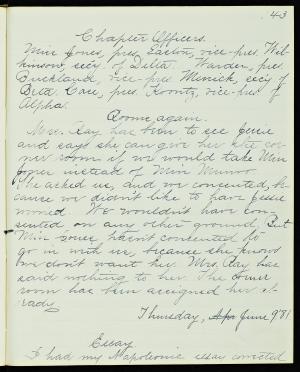 43
Chapter Officers.
Miss Jones, pres. Easton, vice-pres. Wil-
kinson, secty of Delta. Warden, pres.
Buckland, vice-pres. secty of
Beta. Case, pres. Koontz, vice-pres. of
Alpha.
Room again.
Mrs. Ray has been to see Jessie
and says she can give her the cor-
ner room if we would take Miss
instead of Miss Munro.
She asked us, and we consented, be-
cause we didn't like to have Jessie
moved. We wouldn't have con-
sented on any other ground, But
Miss haven't consented to
go in with us, because she knows
we don't want her. Mrs. Ray has
said nothing to her. The
room has been assigned her al-
ready.
Thursday, June 9 '81
Essay
I had my Napoleonic essay corrected